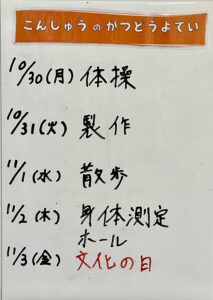 こんしゅうのかつどうよてい
10/30(月) 体操
10/31(火) 製作
11/1(水) 散歩
11/2(木) 身体測定
ホール
11/3(金) 文化の日